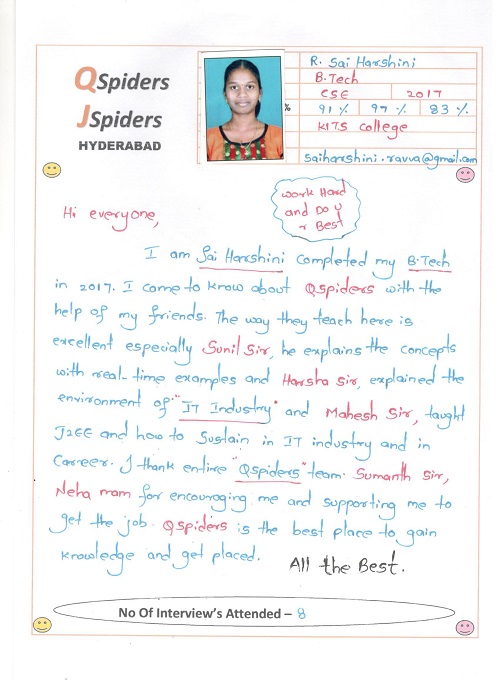 QSpiders
JSpiders
HYDERABAD
R. Sai Harshini
B.Tech
CSE 2017
% 91 % 97 % 83 %
KITS College
saiharshini.ravva@gmail.com
Work Hard
and Do U
r Best
Hi everyone,
I am Sai Harshini completed my B.Tech
in 2017. I came to know about Qspiders with the
help of my friends. The way they teach here is
excellent especially Sunil Sir, he explains the concepts
with real-time examples and Harsha sir, explained the
environment of "IT Industry" and Mahesh Sir, taught
J2EE and how to Sustain in IT industry and in
Career. I thank entire "Qspiders" team. Sumanth Sir,
Neha mam for encouraging me and supporting me to
get the job. Qspiders is the best place to gain
knowledge and get placed. All the Best.
No Of Interview's Attended – 8